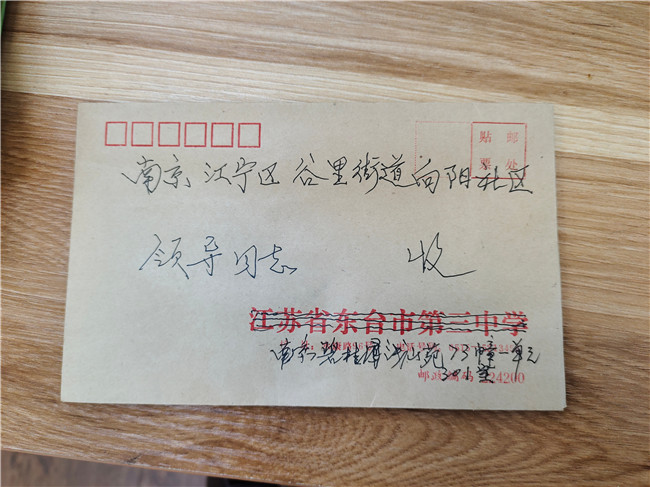 贴 邮
票 处
南京江宁区谷里街道向阳社区
领导同志 收
江苏省东台市第三中学
南京碧桂园 苑73幢一单元
301室
邮政编码 224200